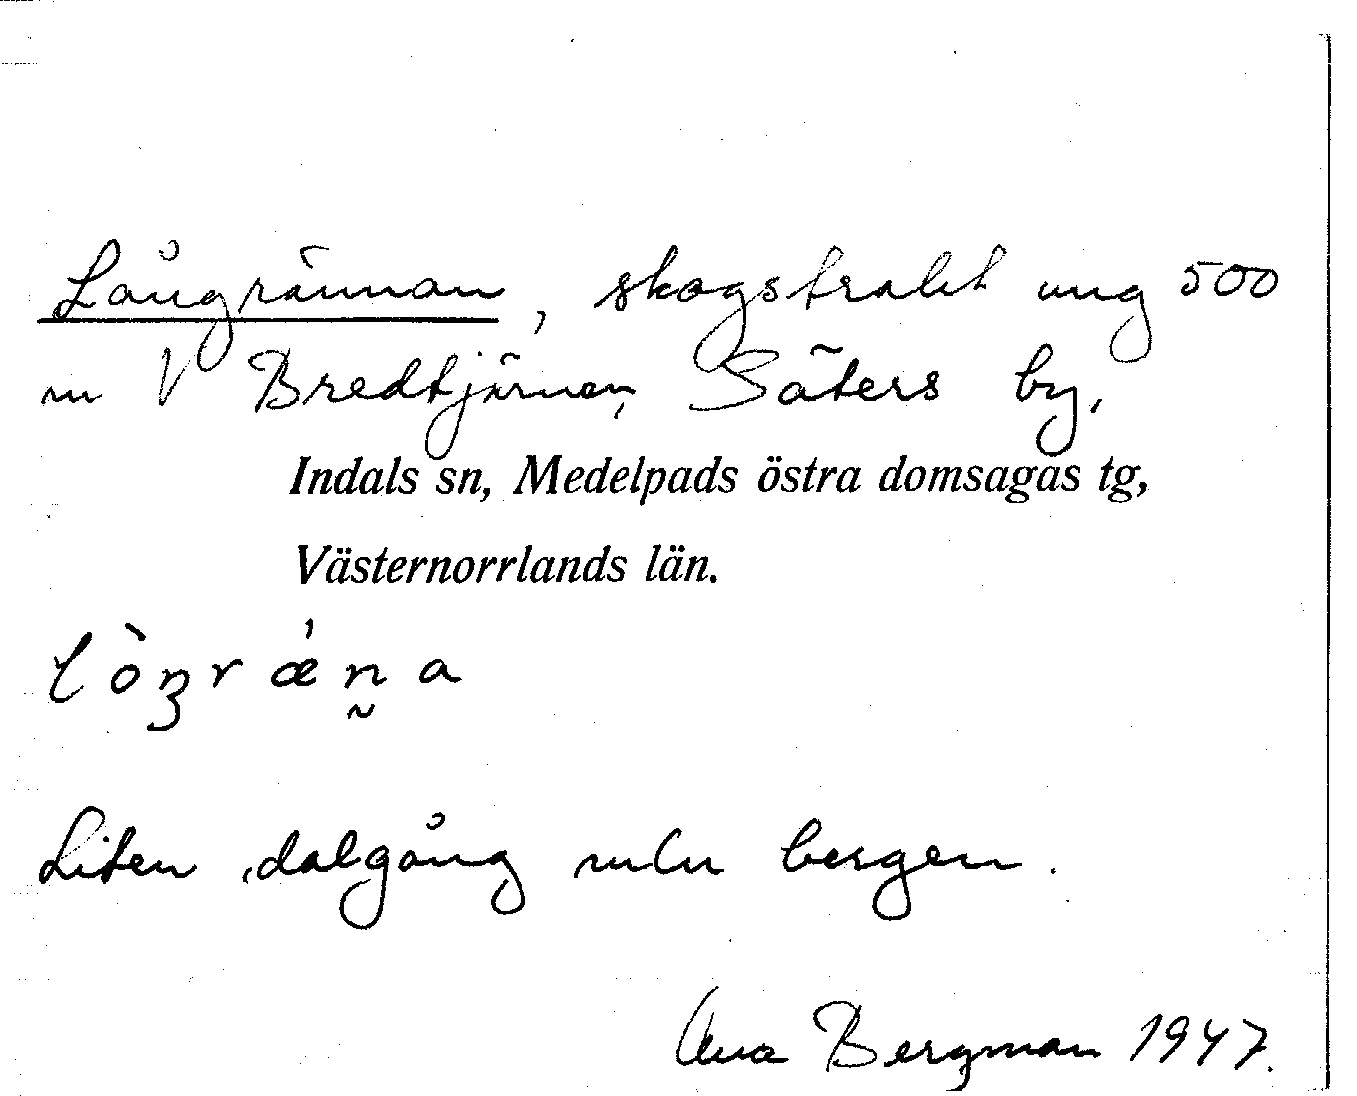 Långrännan, skogstrakt ung 500
m V Bredtjärnen, Säters by,
Indals sn, Medelpads östra domsagas tg,
Västernorrlands län.
lòŋrǽn̰a
Liten dalgång mln bergen.
Bergman 1947.